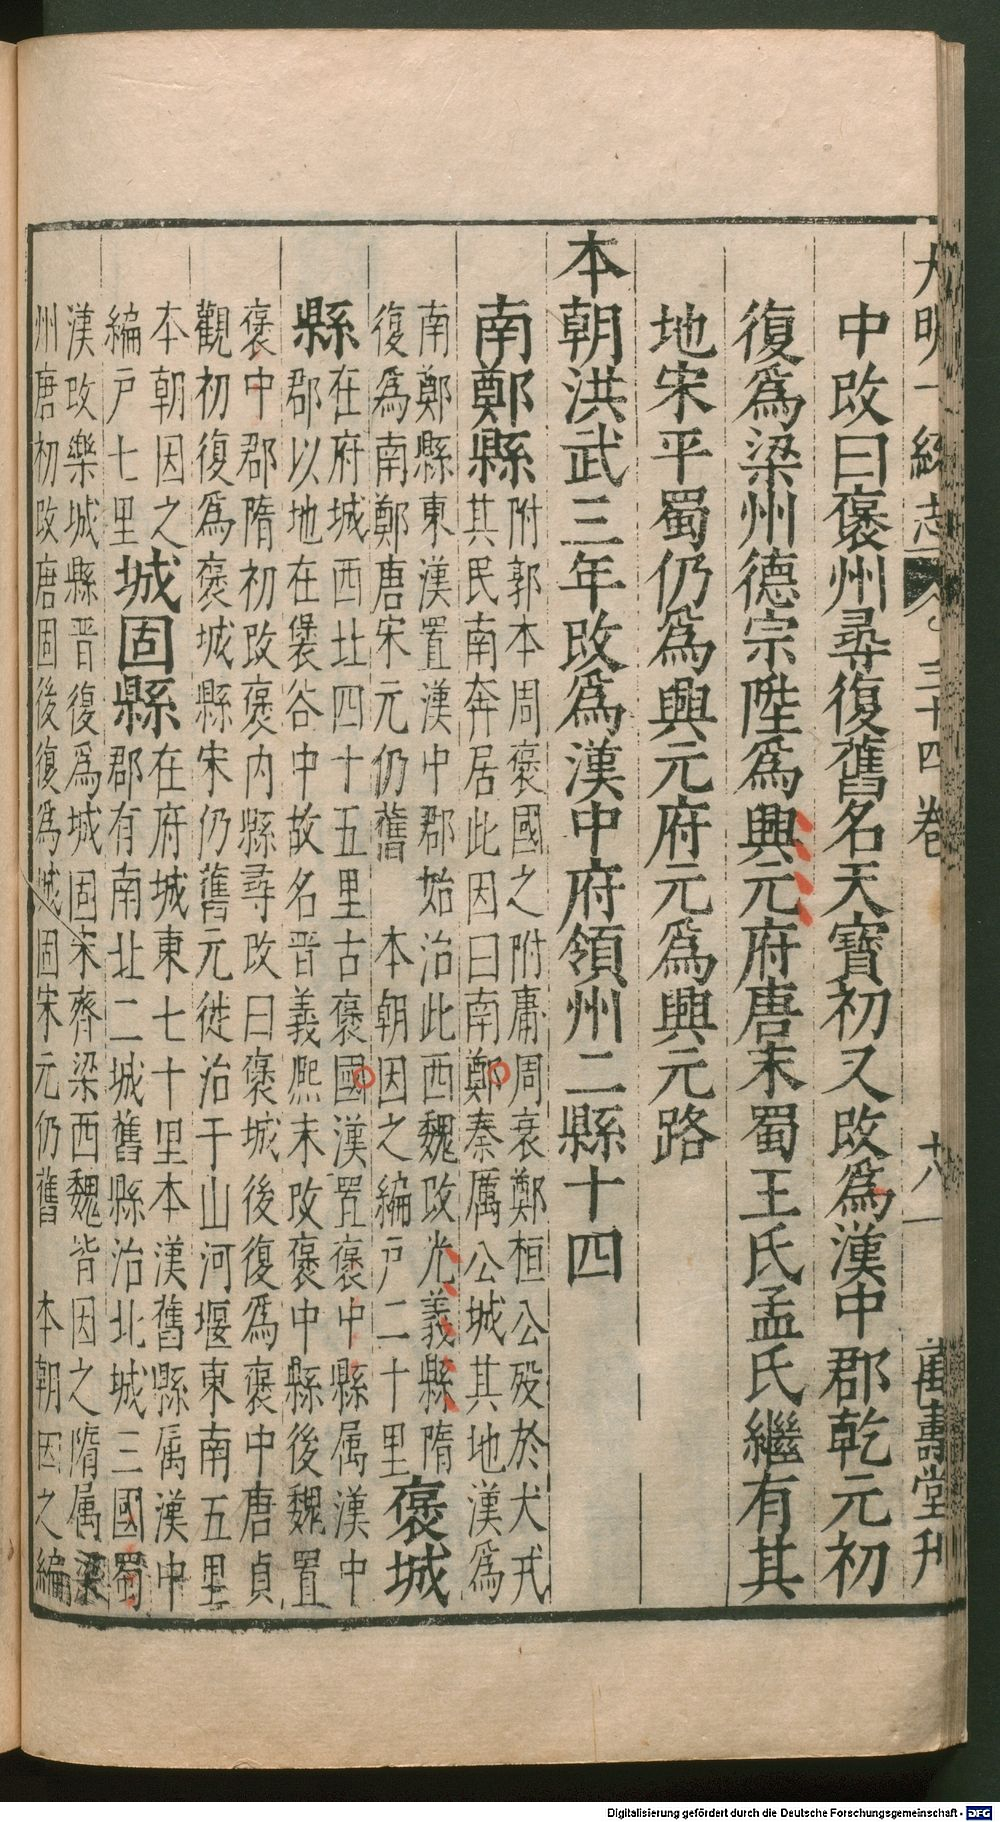 大明一統志 三十四卷 十八 萬壽堂刊
中改曰褒州尋復舊名天寶初又改為漢中郡乾元初
復爲梁州德宗陞爲興元府唐末蜀王氏孟氏繼有其
地宋平蜀仍爲興元府元爲興元路
本朝洪武三年改爲漢中府領州二縣十四
南鄭縣
附郭本周褒國之附庸周衰鄭桓公歿於犬戎
其民南奔居此因曰南鄭秦厲公城其地漢爲
南鄭縣東漢置漢中郡始治此西魏改光義縣隋
復爲南鄭唐宋元仍舊 本朝因之編户二十里
褒城
縣
在府城西北四十五里古褒國漢置褒中縣属漢中
郡以地在褒谷中故名晋義熈末改褒中縣後魏置
褒中郡隋初改褒内縣尋改曰褒城後復爲褒中唐貞
觀初復爲褒城縣宋仍舊元徙治于山河堰東南五里
本朝因之
編户七里
城固縣
在府城東七十里本漢舊縣属漢中
郡有南北二城舊縣治北城三國蜀
漢改樂城縣晋復爲城固宋齊梁西魏皆因之隋属梁
州唐初改唐固後復爲城固宋元仍舊 本朝因之編
Digitalisierung gefördert durch die Deutsche Forschungsgemeinschaft - DFG